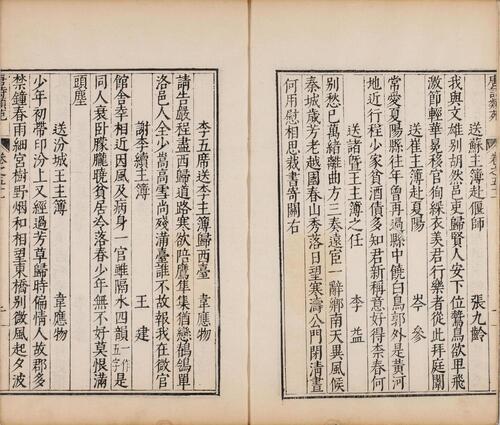 送蘇主簿赴偃師　張九齡
我與文雄別胡然邑吏歸賢人安下位鷙鳥欲卑飛
激節輕華冕移官狥綵衣羡君行樂處從此拜庭闈
送崔主簿赴夏陽　岑參
常愛夏陽縣往年曾再過縣中饒白鳥郭外是黄河
地近行程少家貧酒債多知君新稱意好得柰春何
送諸暨王主簿之任　李益
別愁已萬結離曲方三奏遠宦一辭鄉南天異風候
秦城歲芳老越國春山秀落日望寒濤公門閑清晝
何用慰相思裁書寄關右
李五席送李主簿歸西臺　韋應物
請告嚴程盡西歸道路寒欲陪鷹隼集猶戀鶺鴒單
洛邑人全少嵩高雪尚殘滿臺誰不故報我在微官
謝李續主簿　王建
館舍幸相近因風及病身一官雖隔水四韻一作五字是
同人衰卧朦朧曉貧居冷落春少年無不好莫恨滿
頭塵
送汾城王主簿　韋應物
少年初帶印汾上又經過芳草歸時徧情人故郡多
禁鐘春雨細宮樹野烟和相望東橋別微風起夕波